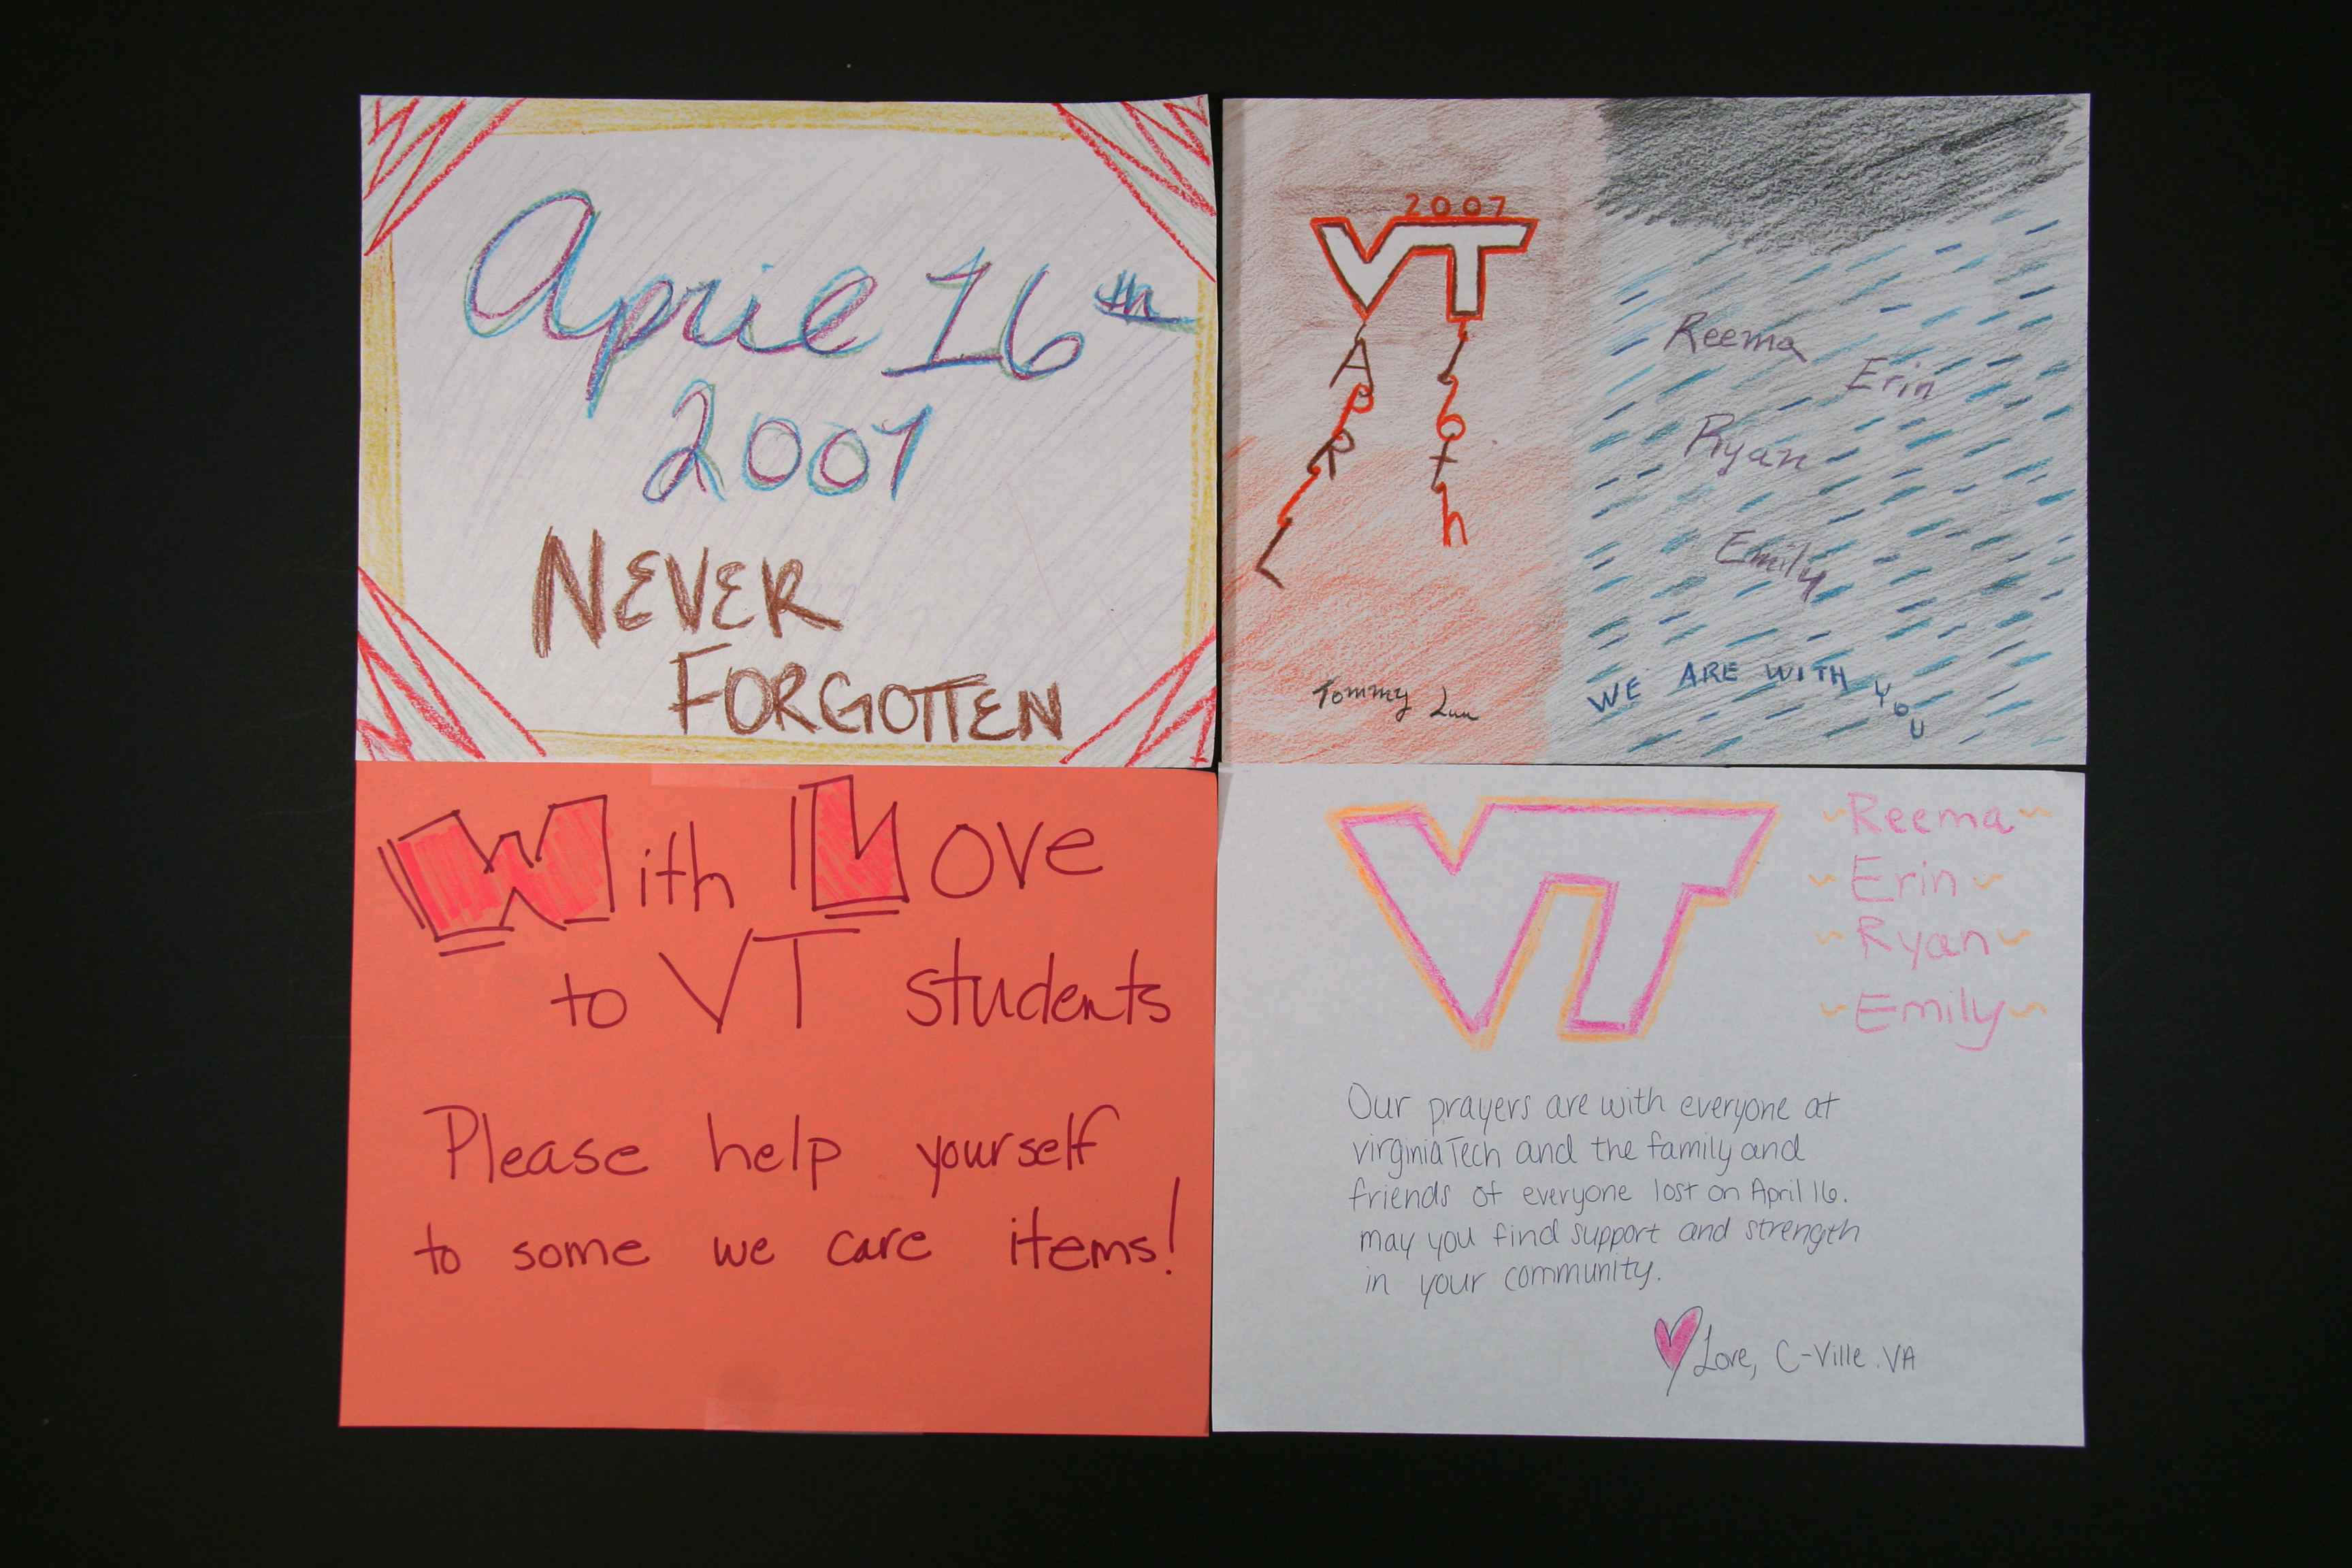 April 16th
2007
NEVER
FORGOTTEN
2007
VT
APRIL
16th
Reema
Erin
Ryan
Emily
WE ARE WITH YOU
Tommy Luu
With Love
to VT students
Please help yourself
to some we care items!
VT
~Reema~
~Erin~
~Ryan~
~Emily~
Our prayers are with everyone at
virginia Tech and the family and
friends of everyone lost on April 16.
may you find support and strength
in your community.
Love, C-Ville. VA